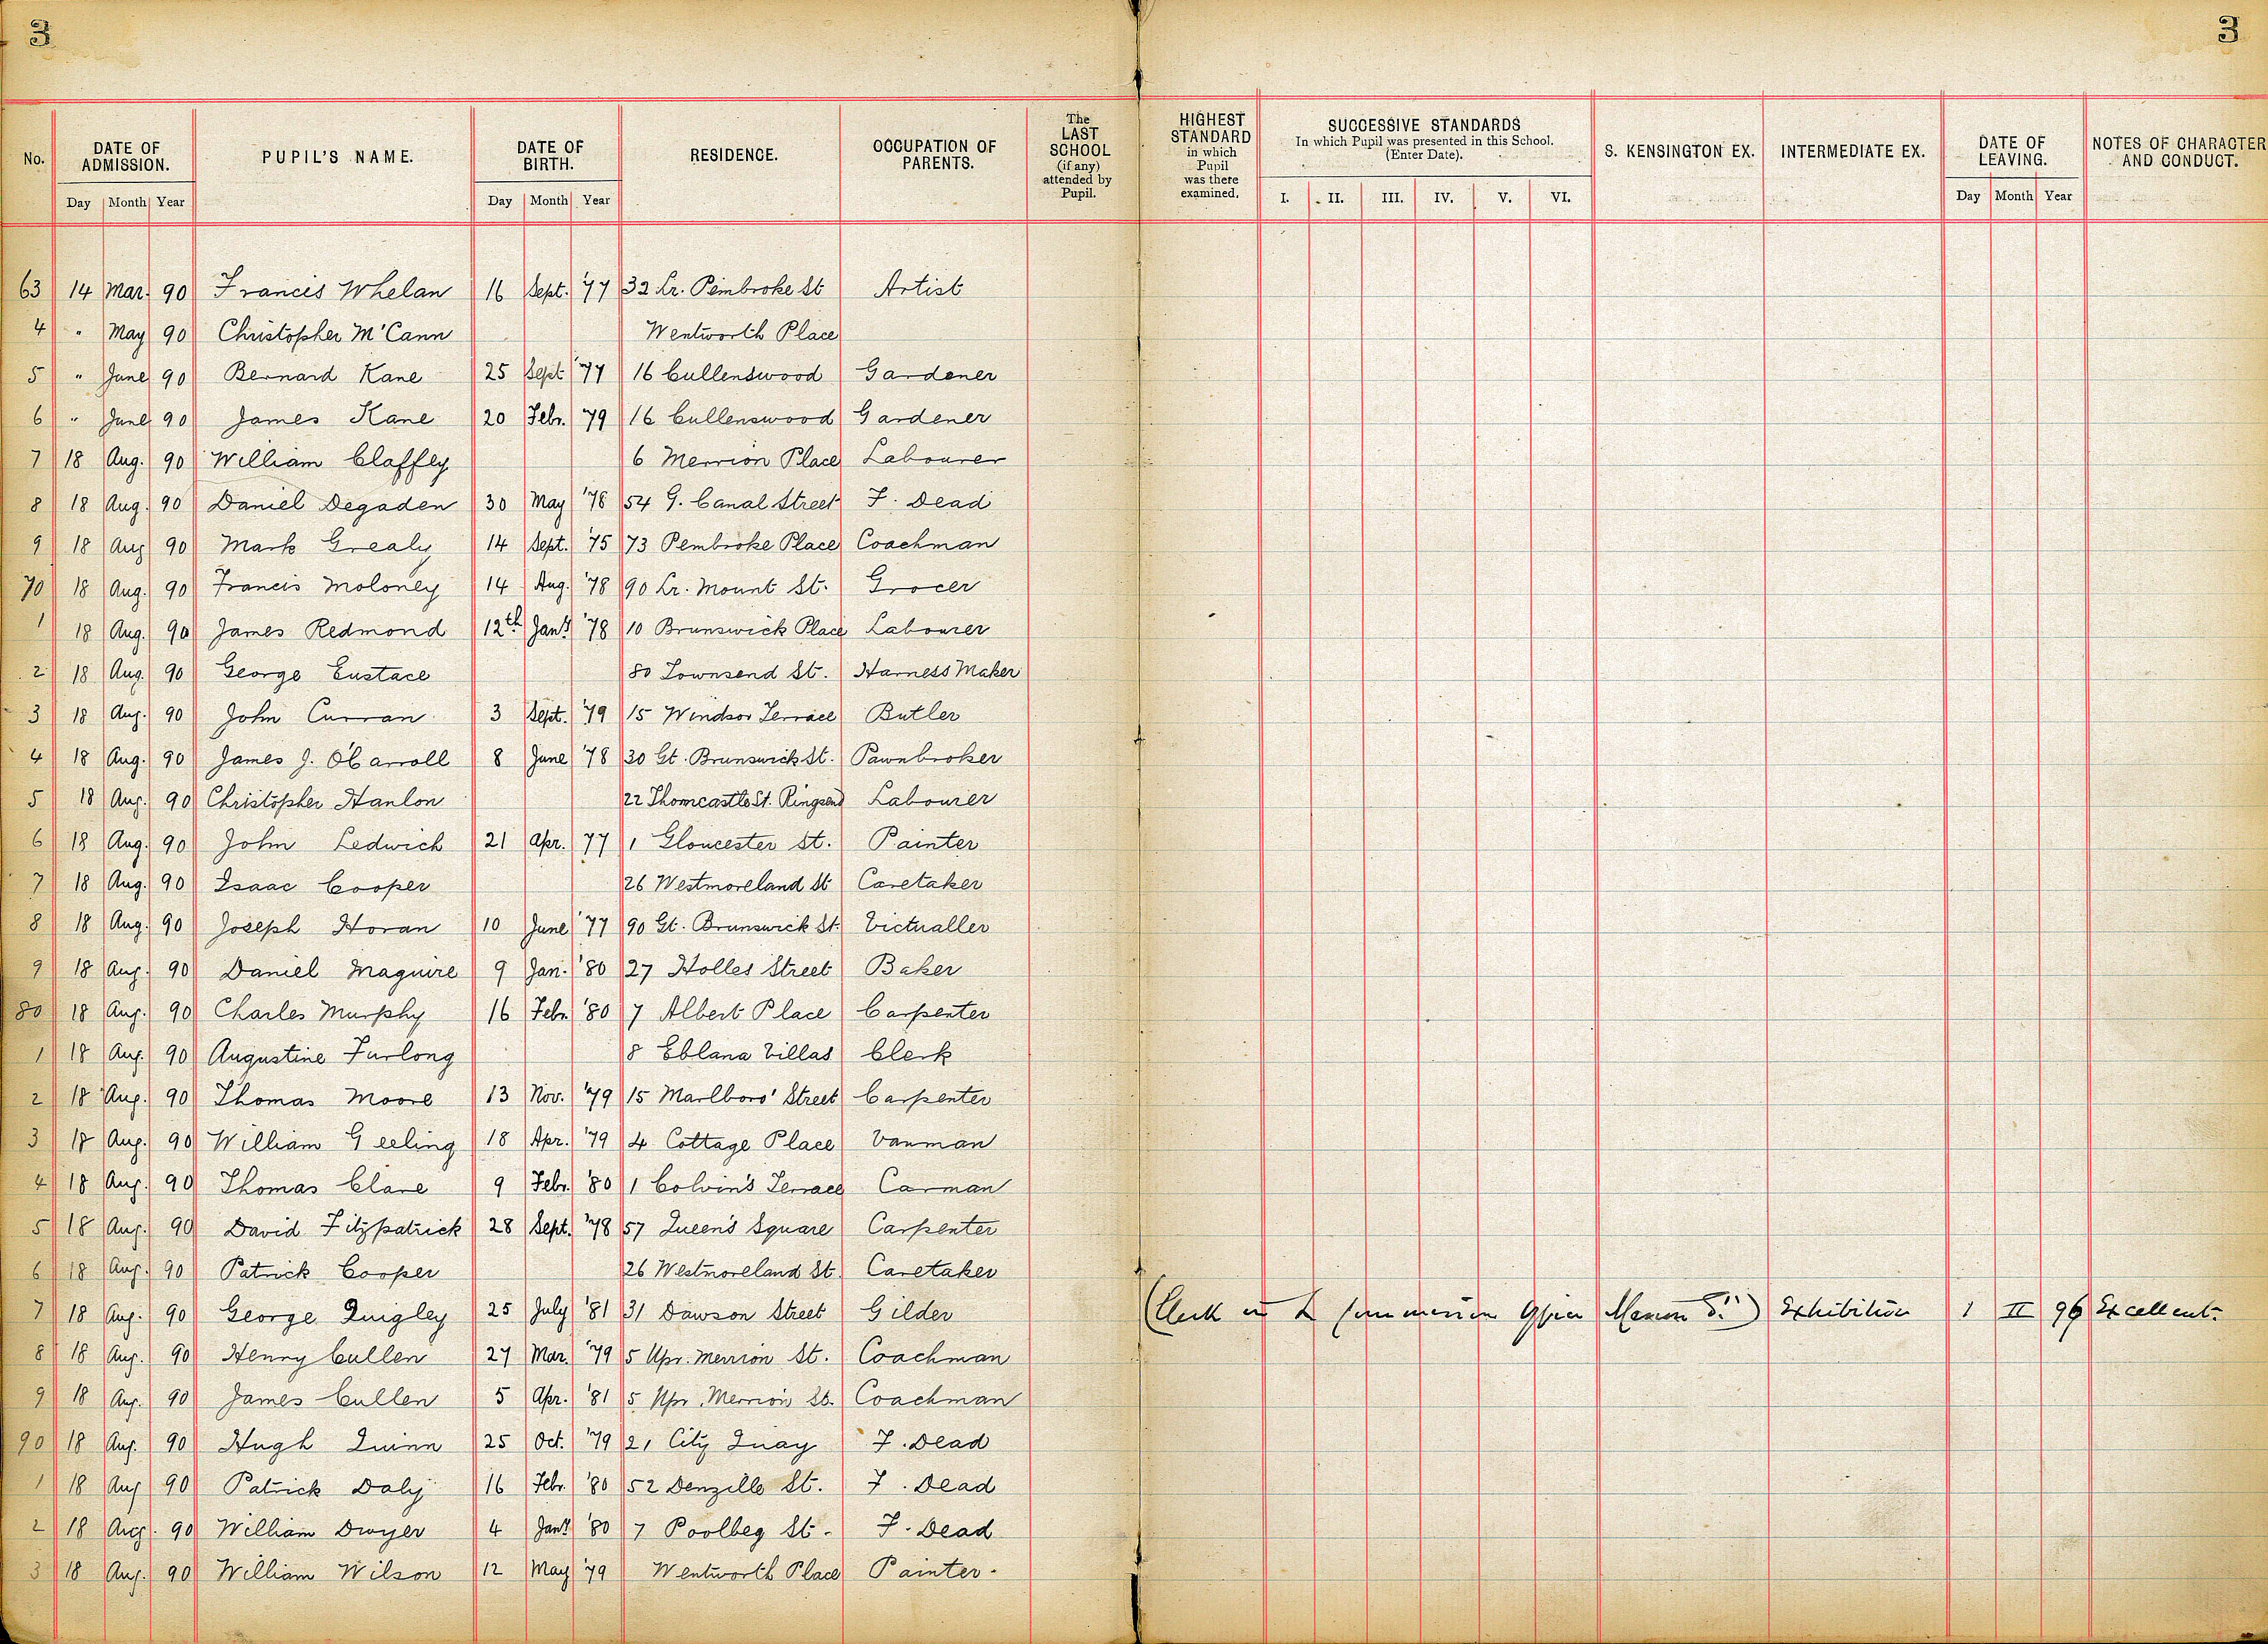 3 3
No. DATE OF ADMISSION. PUPIL'S NAME. DATE OF BIRTH. RESIDENCE. OCCUPATION OF PARENTS. The LAST SCHOOL (if any) attended by Pupil. HIGHEST STANDARD in which Pupil was there examined. SUCCESSIVE STANDARDS In which Pupil was presented in this School. (Enter Date). S. KENSINGTON EX. INTERMEDIATE EX. DATE OF LEAVING. NOTES OF CHARACTER AND CONDUCT.
Day Month Year Day Month Year I. II. III. IV. V. VI. Day Month Year
63 14 Mar. 90 Francis Whelan 16 Sept. '77 32 Lr. Pembroke St Artist
4 " May 90 Christopher M'Cann Wentworth Place
5 " June 90 Bernard Kane 25 Sept '77 16 Cullenswood Gardener
6 " June 90 James Kane 20 Febr. '79 16 Cullenswood Gardener
7 18 Aug. 90 William Claffey 6 Merrion Place Labourer
8 18 Aug. 90 Daniel Degaden 30 May '78 54 G. Canal Street F. Dead
9 18 Aug 90 Mark Grealy 14 Sept. '75 73 Pembroke Place Coachman
70 18 Aug. 90 Francis Moloney 14 Aug. '78 90 Lr. Mount St. Grocer
1 18 Aug. 90 James Redmond 12th Jany '78 10 Brunswick Place Labourer
2 18 Aug. 90 George Eustace 80 Townsend St. Harness Maker
3 18 Aug. 90 John Curran 3 Sept. '79 15 Windsor Terrace Butler
4 18 Aug. 90 James J. O'Carroll 8 June '78 30 Gt. Brunswick St. Pawnbroker
5 18 Aug. 90 Christopher Hanlon 22 Thorncastle St. Ringsend Labourer
6 18 Aug. 90 John Ledwich 21 Apr. 77 1 Gloucester St. Painter
7 18 Aug. 90 Isaac Cooper 26 Westmoreland St Caretaker
8 18 Aug. 90 Joseph Horan 10 June '77 90 Gt. Brunswick St. Victualler
9 18 Aug. 90 Daniel Maguire 9 Jan. '80 27 Holles Street Baker
80 18 Aug. 90 Charles Murphy 16 Febr. '80 7 Albert Place Carpenter
1 18 Aug. 90 Augustine Furlong 8 Eblana Villas Clerk
2 18 Aug. 90 Thomas Moore 13 Nov. '79 15 Marlboro' Street Carpenter
3 18 Aug. 90 William Geeling 18 Apr. '79 4 Cottage Place Vanman
4 18 Aug. 90 Thomas Clare 9 Febr. '80 1 Colvin's Terrace Carman
5 18 Aug. 90 David Fitzpatrick 28 Sept. '78 57 Queen's Square Carpenter
6 18 Aug. 90 Patrick Cooper 26 Westmoreland St. Caretaker
7 18 Aug. 90 George Quigley 25 July '81 31 Dawson Street Gilder (Clerk in Commission Office Merrion St.) Exhibition 1 II 96 Excellent.
8 18 Aug. 90 Henry Cullen 27 Mar. '79 5 Upr. Merrion St. Coachman
9 18 Aug. 90 James Cullen 5 Apr. '81 5 Upr. Merrion St. Coachman
90 18 Aug. 90 Hugh Quinn 25 Oct. '79 21 City Quay F. Dead
1 18 Aug 90 Patrick Daly 16 Febr. '80 52 Denzille St. F. Dead
2 18 Aug. 90 William Dwyer 4 Jany '80 7 Poolbeg St. F. Dead
3 18 Aug. 90 William Wilson 12 May '79 Wentworth Place Painter.